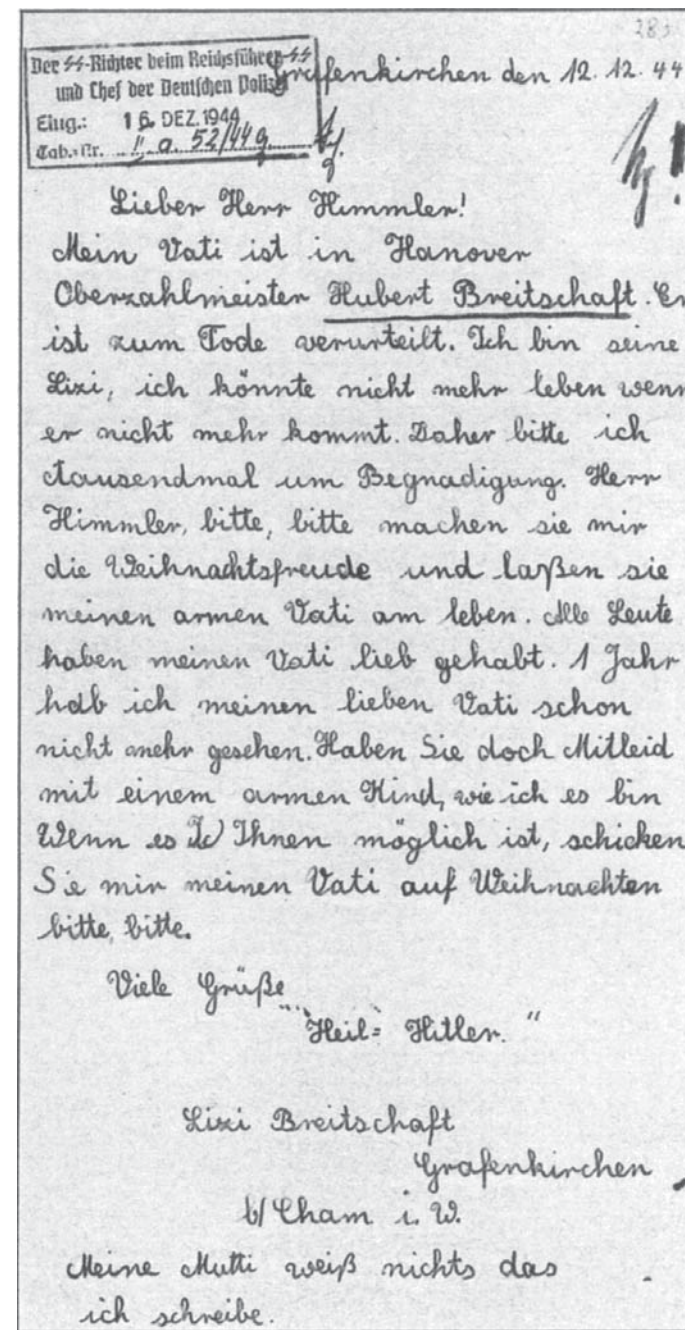 283
Der SS-Richter beim Reichsführer-SS
und Chef der Deutschen Polizei
Eing.: 16. DEZ. 1944
Tab.-Nr. II a. 52/44 g.
Grafenkirchen den 12. 12. 44
Lieber Herr Himmler!
Mein Vati ist in Hanover
Oberzahlmeister Hubert Breitschaft. Er
ist zum Tode verurteilt. Ich bin seine
Lizi, ich könnte nicht mehr leben wenn
er nicht mehr kommt. Daher bitte ich
tausendmal um Begnadigung. Herr
Himmler, bitte, bitte machen sie mir
die Weihnachtsfreude und laßen sie
meinen armen Vati am leben. Alle Leute
haben meinen Vati lieb gehabt. 1 Jahr
hab ich meinen lieben Vati schon
nicht mehr gesehen. Haben Sie doch Mitleid
mit einem armen Kind, wie ich es bin
Wenn es Ihnen möglich ist, schicken
Sie mir meinen Vati auf Weihnachten
bitte, bitte.
Viele Grüße
"Heil= Hitler."
Lizi Breitschaft
Grafenkirchen
b/ Cham i. W.
Meine Mutti weiß nichts das
ich schreibe.